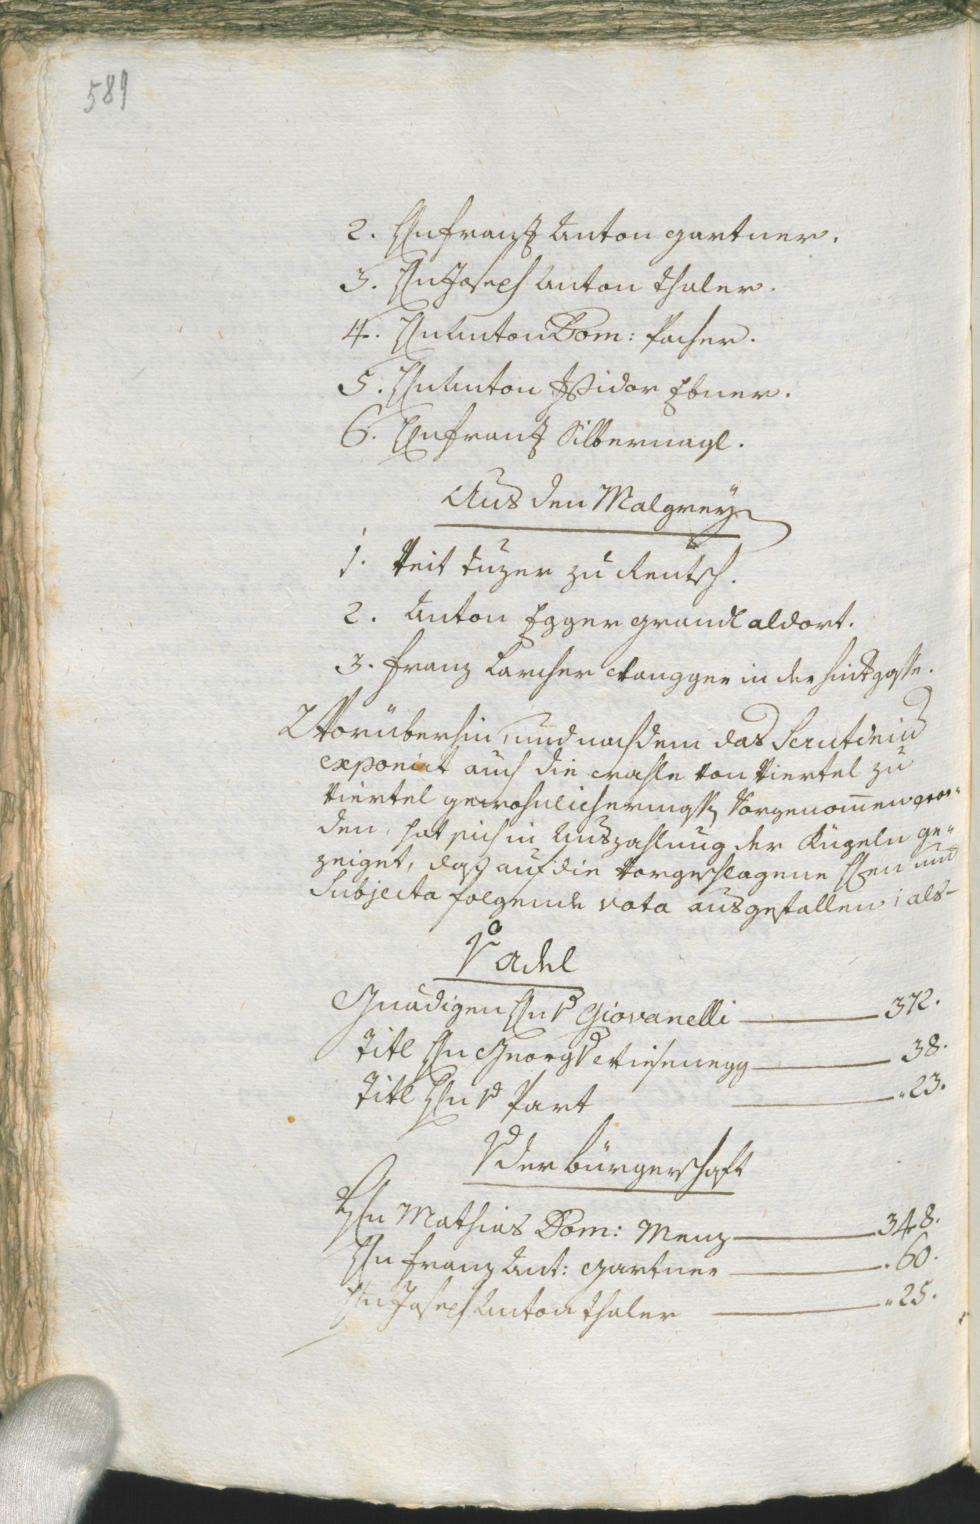 589
2. Hn Frantz Anton Gartner.
3. Hn Joseph Anton Thaler.
4. Hn Anton Dom: Pacher.
5. Hn Anton Isidor Ebner.
6. Hn Frantz Silbernagl.
Aus den Malgreyen
1. Veit Tuzer zu Rentsch.
2. Anton Egger Grandl aldort.
3. Franz Larcher Wangger in der Hintgasse.
Worüberhin, und nachdem das Scrutinium
exponirt auch die Wahle von Viertel zu
Viertel gewohnlichermassen vorgenommen wor„
den, hat sich in Auszahlung der Kugeln ge„
zeiget, daß auf die vorgeschlagene Hen und
Subjecta folgende vota ausgefallen; als
V. Adel
Gnädigen Hn v. Giovanelli 372.
Titl Hn Georg v. Wiesenegg 38.
Titl Hn v. Part 23.
V. der Bürgerschaft
Hn Mathias Dom: Menz 348.
Hn Franz Ant: Gartner 60.
Hn Joseph Anton Thaler 25.